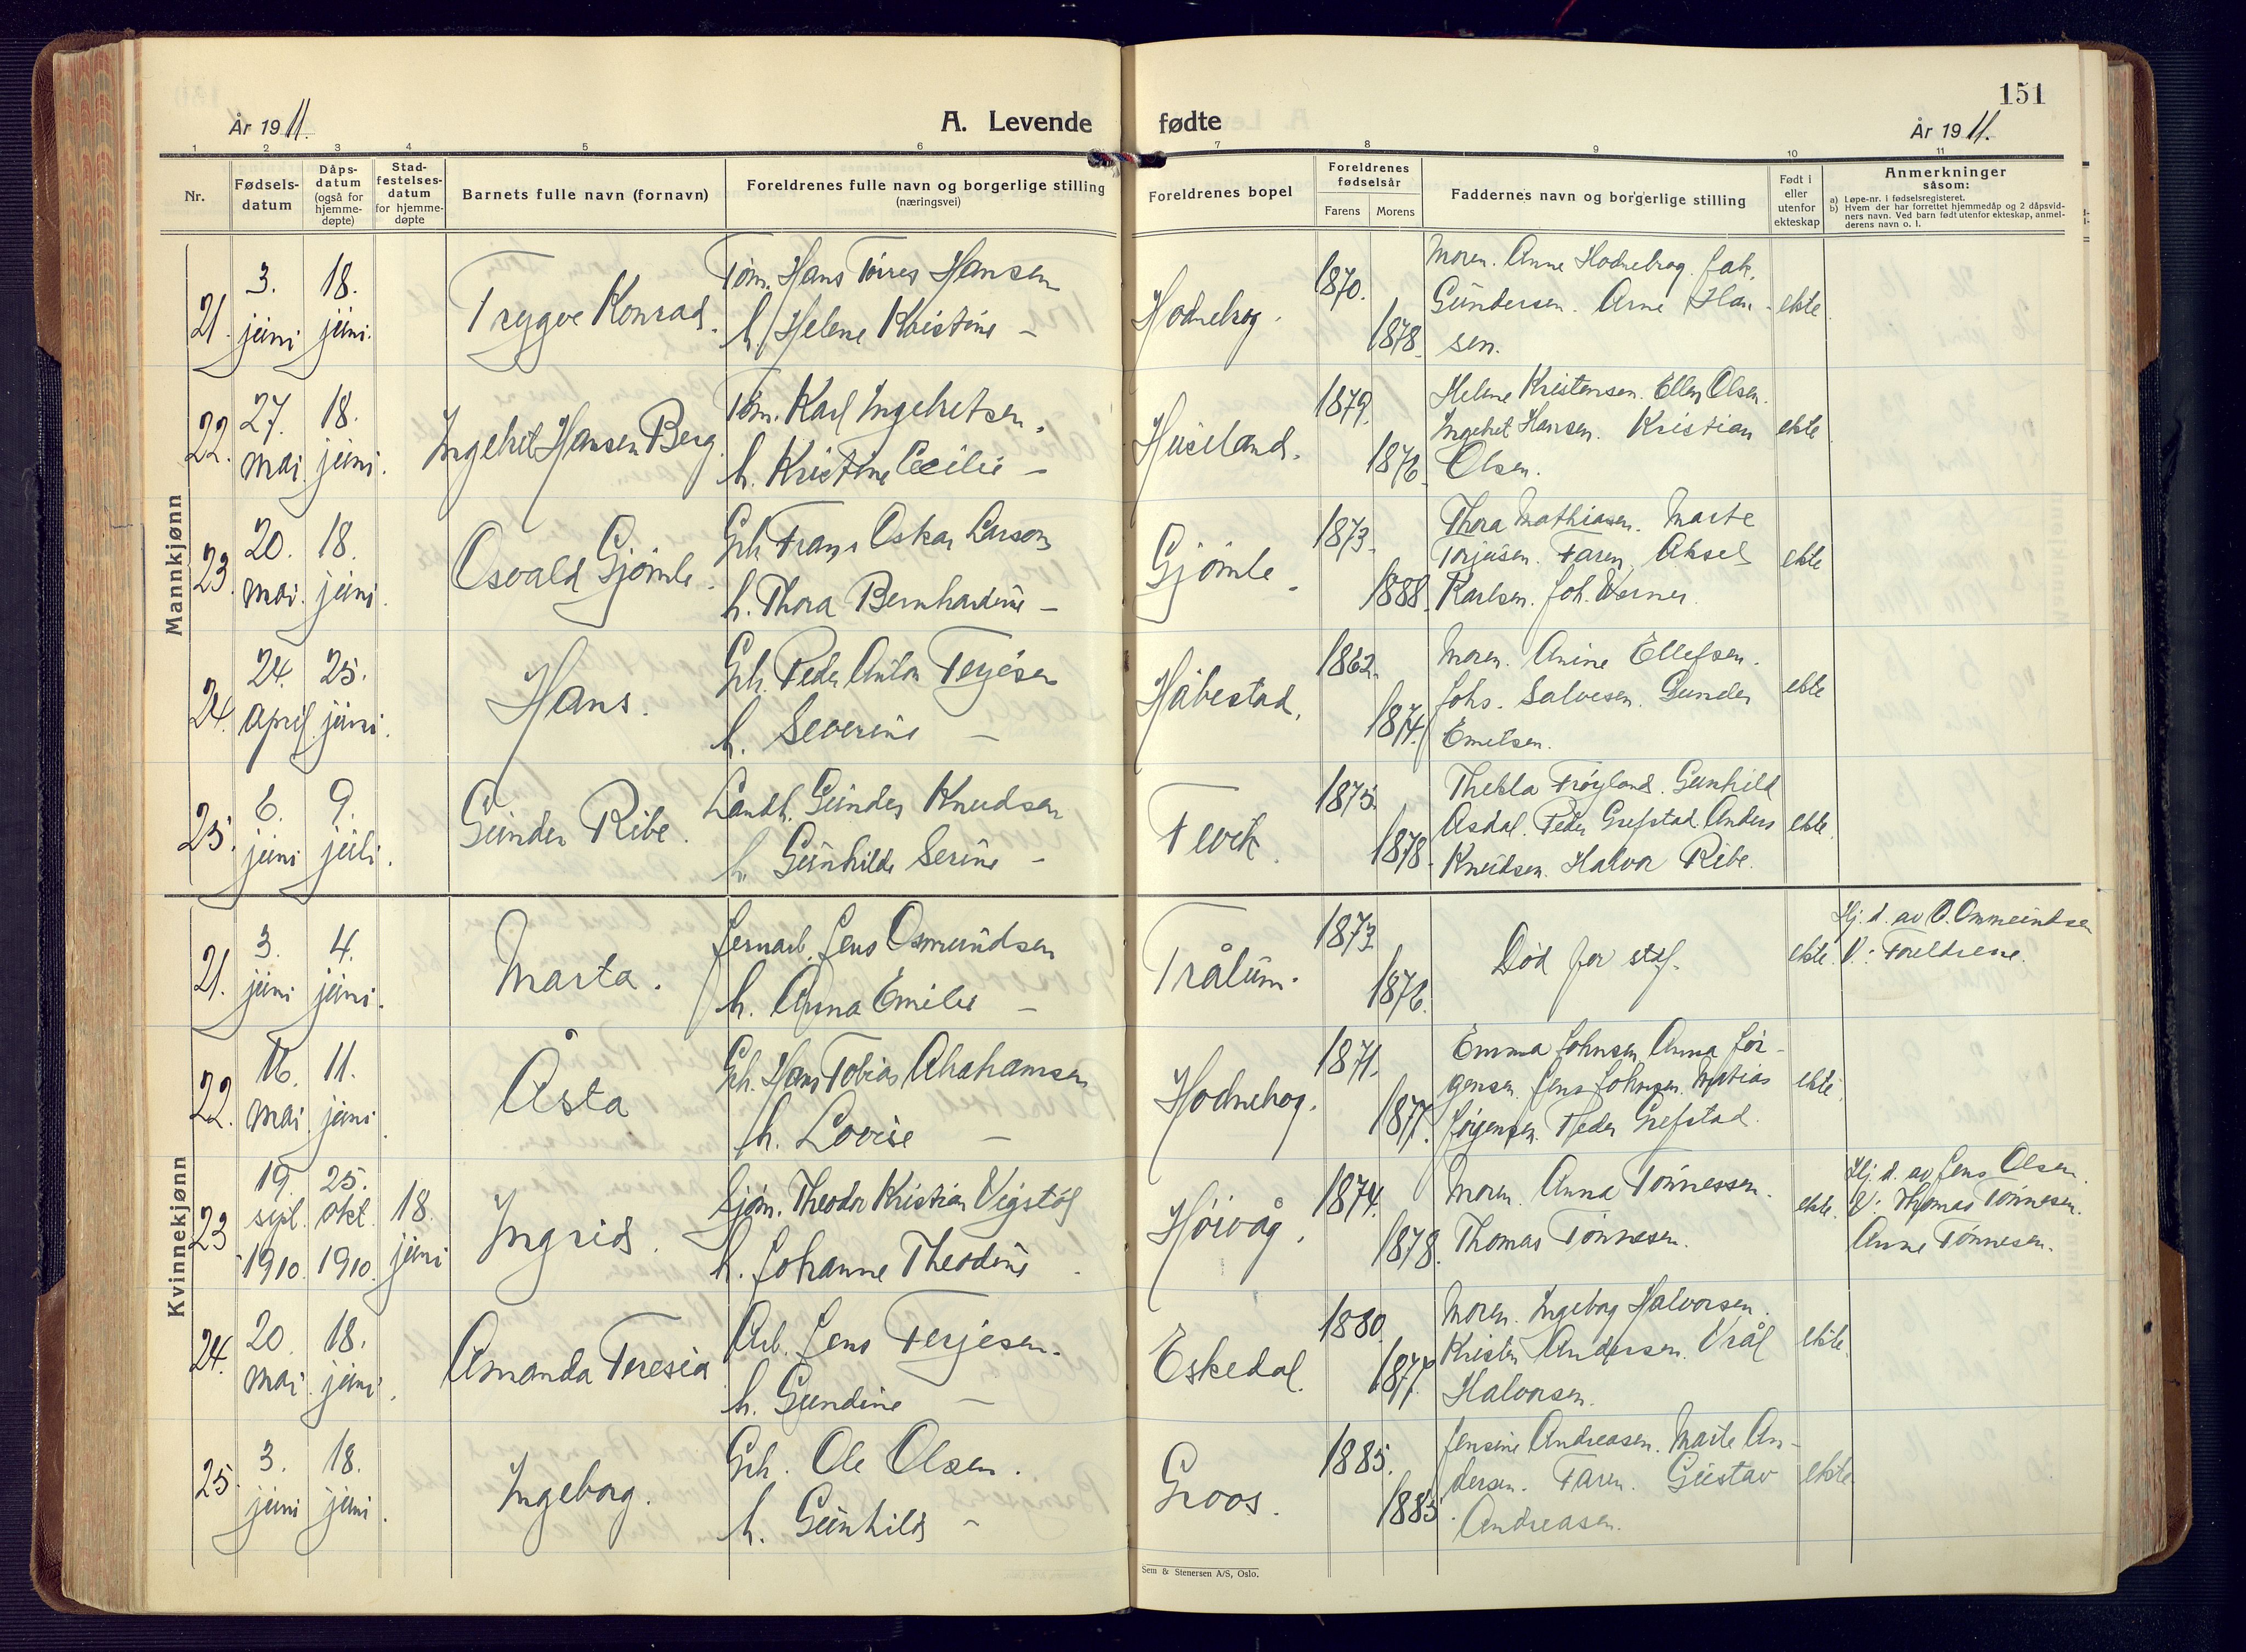 151
År 1911.
A. Levende fødte
År 1911.
1 2 3 4 5 6 7 8 9 10 11
Nr.
Fødsels-
datum
Dåps-
datum
(også for
hjemme-
døpte)
Stad-
festelses-
datum
for hjemme-
døpte
Barnets fulle navn (fornavn)
Foreldrenes fulle navn og borgerlige stilling
(næringsvei)
Foreldrenes bopel
Foreldrenes
fødselsår
Farens Morens
Faddernes navn og borgerlige stilling
Født i
eller
utenfor
ekteskap
Anmerkninger
såsom:
a) Løpe-nr. i fødselsregisteret.
b) Hvem der har forrettet hjemmedåp og 2 dåpsvid-
ners navn. Ved barn født utenfor ekteskap, anmel-
derens navn o. l.
Mannkjønn
21. 3. juni 18. juni. Trygve Konrad.
Töm. Hans Törres Hansen
h. Helene Kristine —
Hodnebrog. 1870. 1878.
Moren. Anne Hodnebrog. Jak.
Gundersen. Arne Han-
sen.
ekte
22. 27. mai 18. juni. Ingebret Hansen Berg.
Töm. Karl Ingebretsen.
h. Kristine Cecilie —
Huseland. 1879. 1876.
Helene Kristensen. Ellen Olsen.
Ingebret Hansen. Kristian
Olsen.
ekte
23. 20. mai. 18. juni. Osvald Gjömle.
Gbr. Frans Oskar Larsom
h. Thora Bernhardine —
Gjömle. 1873. 1888.
Thora Mathiasen. Marte
Torjusen. Faren. Aksel
Karlsen. Joh. Werner.
ekte
24. 24. april. 25. juni. Hans.
Gbr. Peder Anton Terjesen
h. Severine —
Håbestad. 1862. 1874.
Moren. Anine Ellefsen.
Johs. Salvesen. Gunder
Emetsen.
ekte
25. 6. juni 9. juli. Gunder Ribe.
Landh. Gunder Knudsen
h. Gunhilde Serine —
Fevik. 1875. 1878.
Thekla Fröyland. Gunhild
Asdal. Peder Grefstad. Anders
Knudsen. Halvor Ribe.
ekte
Kvinnekjønn
21. 3. juni 4. juni. Marta.
Jernarb. Jens Osmundsen
h. Anna Emilie —
Trålum. 1873. 1876.
Död för stdf.
ekte.
Hj. d. av O. Ommundsen
V: Foreldrene.
22. 16. mai 11. juni. Åsta
Gbr. Hans Tobias Abrahamsen
h. Lovise —
Hodnebog. 1871. 1877.
Emma Johnsen. Anna Jör-
gensen. Jens Johnsen. Matias
Jörgensen. Peder Grefstad.
ekte
23 19. sept. 1910 25. okt. 1910. 18. juni Ingrid.
Sjöm. Theodor Kristian Vigstöl
h. Johanne Theodine
Höivåg. 1874. 1878.
Moren. Anna Tönnessen.
Thomas Tönnesen.
ekte.
Hj. d. av Jens Olsen.
V: Thomas Tönnesen.
Anne Tönnesen.
24. 20. mai 18. juni. Amanda Teresia
Arb. Jens Terjesen.
h. Gundine —
Eskedal. 1880. 1877.
Moren. Ingeborg Halvorsen.
Kristen Andersen. Vrål
Halvorsen.
ekte.
25. 3. juni 18. juni. Ingeborg.
Gbr. Ole Olsen.
h. Gunhild —
Groos. 1885. 1885.
Jensine Andreasen. Marte An-
dersen. Faren. Gustav
Andreasen.
ekte
Sem & Stenersen A/S, Oslo.